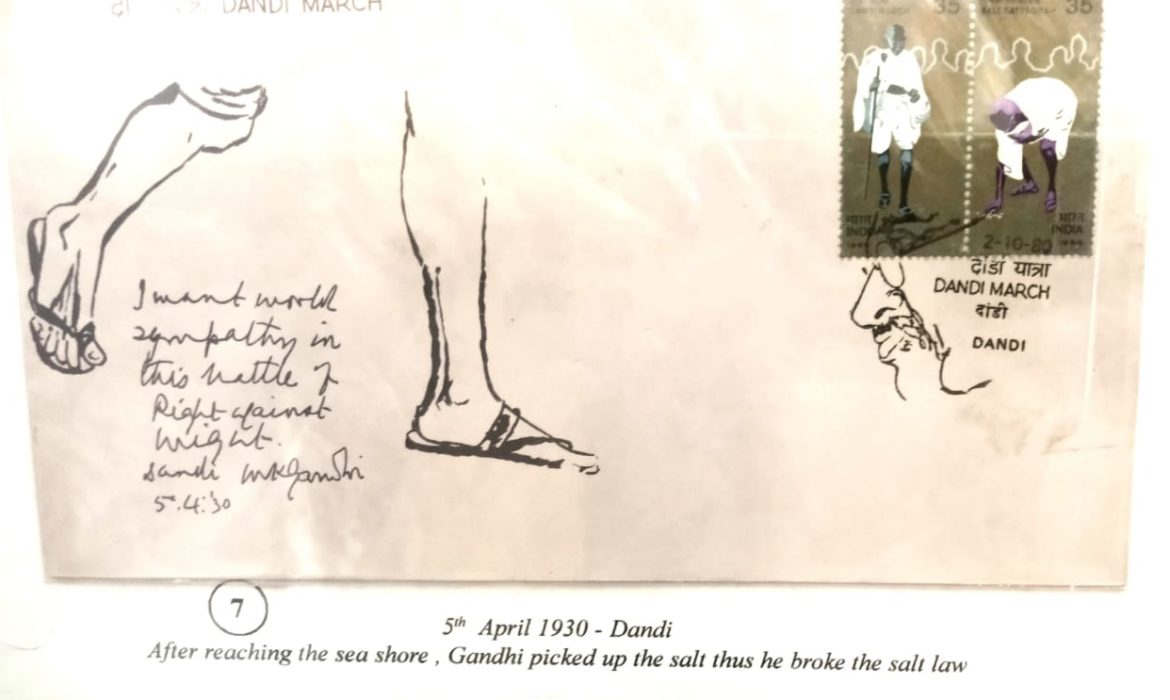 DANDI MARCH
35 35
भारत INDIA
भारत INDIA
2-10-80
दांडी यात्रा
DANDI MARCH
दांडी
DANDI
I want world
sympathy in
this battle of
Right against
might.
Dandi MKGandhi
5.4.'30
7
5th April 1930 - Dandi
After reaching the sea shore , Gandhi picked up the salt thus he broke the salt law